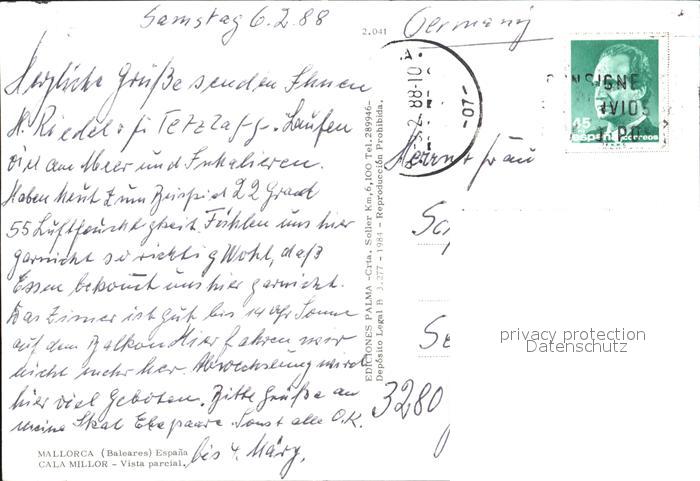 Samstag 6.2.88
Herzliche Grüße senden Ihnen
H. Riedel u. fr. Tetzlaff. Laufen
viel am Meer und Inhalieren.
Haben heut zum Beispiel 22 Grad
55 Luftfeuchtigkeit. Fühlen uns hier
garnicht so richtig Wohl, daß
Essen bekomt uns hier garnicht.
Das Zimer ist gut bis 14 Uhr Sonne
auf dem Balkon. Hier fahren wir
nicht mehr her. Abwechslung wird
hier viel Geboten. Bitte Grüße an
meine Skat Ehepaare. Sonst alle O.K.
bis 4. März.
MALLORCA (Baleares) España
CALA MILLOR - Vista parcial.
2.041
EDICIONES PALMA -Crta. Soller Km, 6,100 Tel. 289946-
Depósito Legal B 3.277 - 1984 - Reproducción Prohibida.
Germany
2-88-10
-07-
NSIGNE
45
españa
correos
Herrn + Frau
3280
privacy protection
Datenschutz